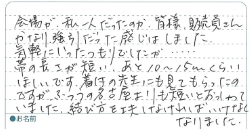 会場が、私一人だったのか、皆様、販売員さん
かなり、強引だった感じはしました。
気軽にいったつもりでしたが、
帯の長さが短い。あと10〜15cmくらい
ほしいです。着付の先生にも見てもらったの
ですが、ふつうの名古屋よりも短いとおっしゃって
いました。結び方を工夫しなければいけなく
なりました。
●お名前